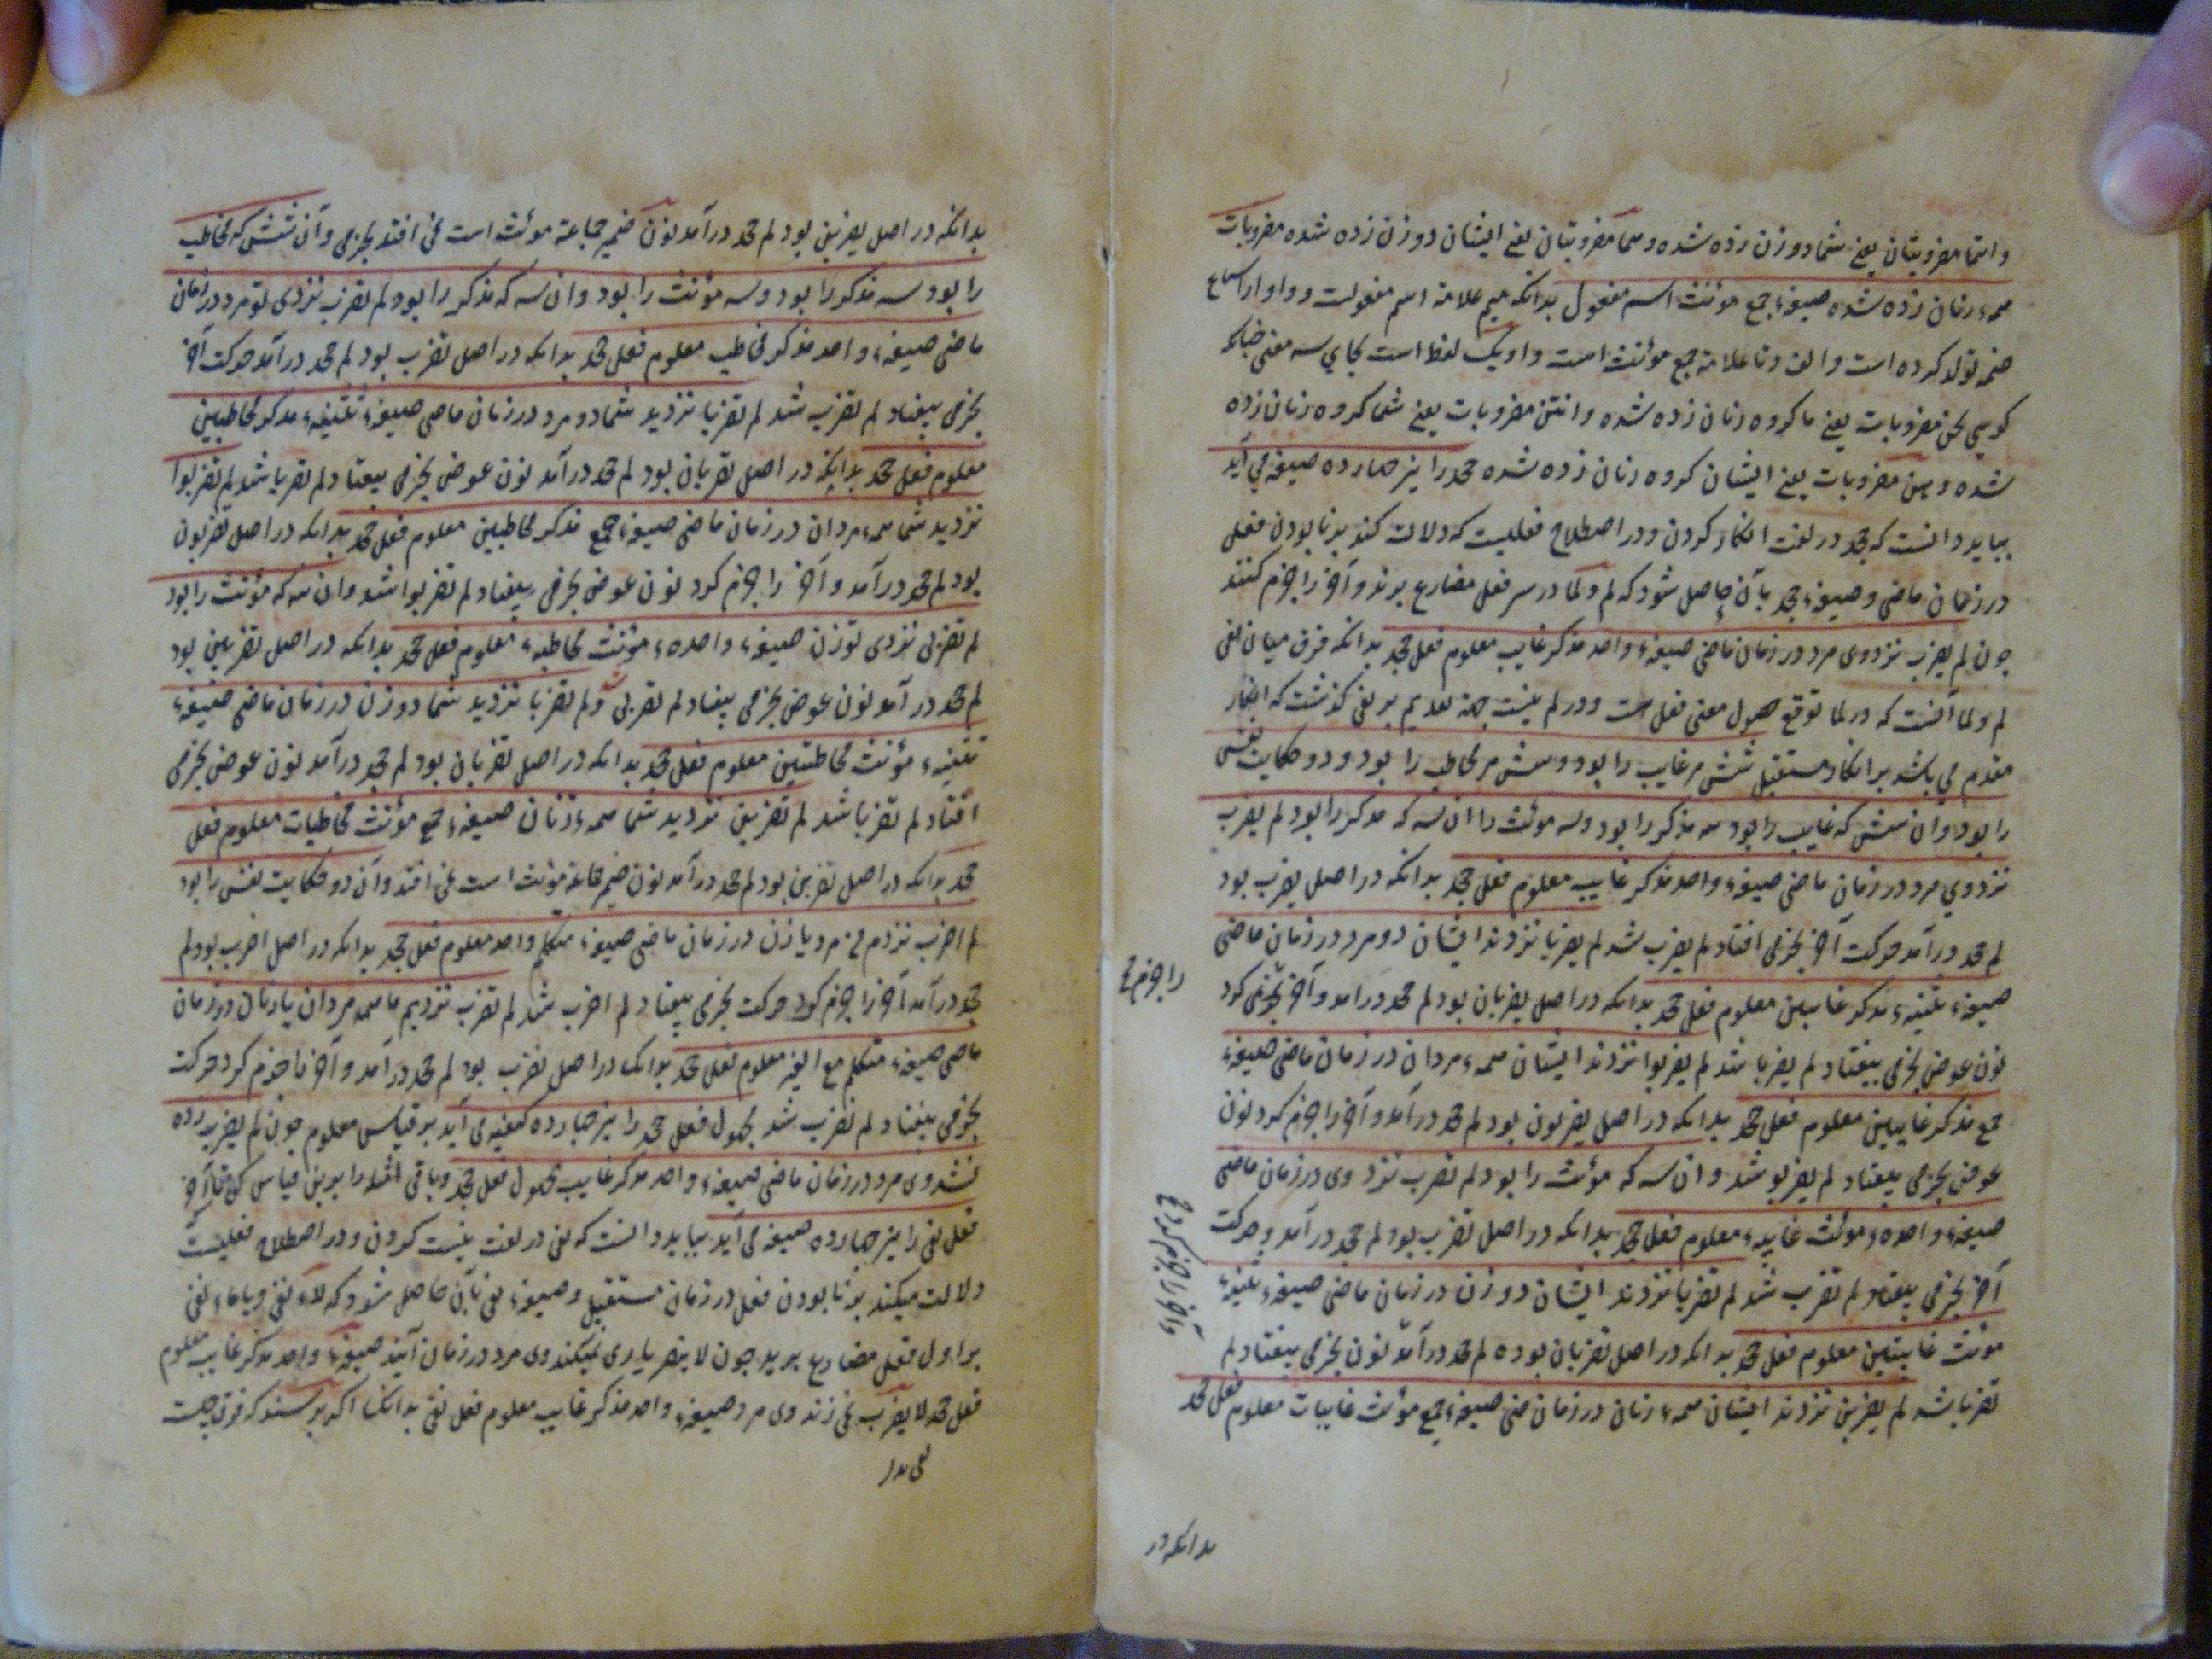 وانتما مضروبتان یعنے شما دو زن زده شده وهما مضروبتان یعنے ایشان دو زن زده شده مضروبات
همهٔ زنان زده شده صیغهٔ جمع مؤنث اسم مفعول بدانکه میم علامة اسم مفعولست و واو از اشباع
ضمه تولد کرده است والف وتا علامة جمع مؤنث است واو یک لفظ است بجاي سه معنی چنانکه
کویي نحن مضروبات یعنے ما کروه زنان زده شده وانتن مضروبات یعنے شما کروه زنان زده
شده وهن مضروبات یعنے ایشان کروه زنان زده شده جحد را نیز چهارده صیغه می آید
بباید دانست که جحد در لغت انکار کردن و در اصطلاح فعلیست که دلالت کند بر نابودن فعلی
در زمان ماضی وصیغهٔ جحد بآن حاصل شود که لم ولما در سر فعل مضارع برند وآخر را جزم کنند
چون لم یضرب نزد وی مرد در زمان ماضی صیغهٔ واحد مذکر غایب معلوم فعل جحد بدانکه فرق میان لفی
لم ولما آنست که در لما توقع حصول معنی فعل است ودر لم نیست جحد تقدیم بر نفی کذشت که انکار
مقدم می باشد بر انکار مستقبل شش مر غایب را بود وشش مر مخاطب را بود و دو حکایت نفس
را بود وان شش که غایب را بود سه مذکر را بود وسه مؤنث را ان سه که مذکر را بود لم یضرب
نزد وي مرد در زمان ماضی صیغهٔ واحد مذکر غایب معلوم فعل جحد بدانکه در اصل یضرب بود
لم جحد درآمد حرکت آخر بجزمی افتاد لم یضرب شد لم یضربا نزدند ایشان دو مرد در زمان ماضی
صیغهٔ تثنیهٔ مذکر غایبین معلوم فعل جحد بدانکه در اصل یضربان بود لم جحد درآمد وآخر بجزمی کرد
را جزم
نون عوض بجزمی بیفتاد لم یضربا شد لم یضربوا نزدند ایشان همهٔ مردان در زمان ماضی صیغهٔ
جمع مذکر غایبین معلوم فعل جحد بدانکه در اصل یضربون بود لم جحد درآمد وآخر را جزم کرد نون
عوض بجزمی بیفتاد لم یضربو شد وان سه که مؤنث را بود لم تضرب نزد وی در زمان ماضی
صیغهٔ واحدهٔ مؤنث غایبهٔ معلوم فعل جحد بدانکه در اصل تضرب بود لم جحد درآمد وحرکت
وآخر را جزم کرد
آخر بجزمی بیفتاد لم تضرب شد لم تضربا نزدند ایشان دو زن در زمان ماضی صیغهٔ تثنیهٔ
مونث غایبتین معلوم فعل جحد بدانکه در اصل تضربان بوده لم جحد درآمد نون بجزمی بیفتاد لم
تضربا شد لم یضربن نزدند ایشان همهٔ زنان در زمان ضی صیغهٔ جمع مؤنث غایبات معلوم فعل جحد
بدانکه در
بدانکه در اصل یضربن بود لم جحد درآمد نون ضمیر جماعة مونث است نمی افتد بجزمی وآن شش که مخاطب
را بود سه مذکر را بود وسه مؤنث را بود وان سه که مذکر را بود لم تضرب نزدی تو مرد در زمان
ماضی صیغهٔ واحد مذکر مخاطب معلوم فعل جحد بدانکه در اصل تضرب بود لم جحد درآمد حرکت آخر
بجزمی بیفتاد لم تضرب شد لم تضربا نزدید شما دو مرد در زمان ماضی صیغهٔ تثنیهٔ مذکر مخاطبین
معلوم فعل جحد بدانکه در اصل تضربان بود لم جحد درآمد نون عوض بجزمی بیفتاد لم تضربا شد لم تضربوا
نزدید شما همهٔ مردان در زمان ماضی صیغهٔ جمع مذکر مخاطبین معلوم فعل جحد بدانکه در اصل تضربون
بود لم جحد درآمد وآخر را جزم کرد نون عوض بجزمی بیفتاد لم تضربوا شد وان سه که مؤنث را بود
لم تضربی نزدی تو زن صیغهٔ واحدهٔ مؤنث مخاطبهٔ معلوم فعل جحد بدانکه در اصل تضربین بود
لم جحد درآمد نون عوض بجزمی بیفتاد لم تضربی شد ولم تضربا نزدید شما دو زن در زمان ماضی صیغهٔ
تثنیهٔ مؤنث مخاطبتین معلوم فعل جحد بدانکه در اصل تضربان بود لم جحد درآمد نون عوض بجزمی
افتاد لم تضربا شد لم تضربن نزدید شما همهٔ زنان صیغهٔ جمع مؤنث مخاطبات معلوم فعل
جحد بدانکه در اصل تضربن بود لم جحد درآمد نون ضمیر جماعة مؤنث است نمی افتد وآن دو حکایت نفس را بود
لم اضرب نزدم من مرد یا زن در زمان ماضی صیغهٔ متکلم واحد معلوم فعل جحد بدانکه در اصل اضرب بود لم
جحد درآمد آخر را جزم کرد حرکت بجزمی بیفتاد لم اضرب شد لم نضرب نزدیم ما همه مردان یا زنان در زمان
ماضی صیغهٔ متکلم مع الغیر معلوم فعل جحد بدانک در اصل نضرب بود لم جحد درآمد وآخر را جزم کرد حرکت
بجزمی بیفتاد لم نضرب شد مجهول فعل جحد را نیز چهارده صیغه می آید بر قیاس معلوم چون لم یضرب زده
نشد وی مرد در زمان ماضی صیغهٔ واحد مذکر غایب مجهول فعل جحد وباقی امثله را برین قیاس کن تا آخر
فعل نفی را نیز چهارده صیغه می آید بباید دانست که نفی در لغت نیست کردن ودر اصطلاح فعلیست
دلالت میکند بر نابودن فعل در زمان مستقبل وصیغهٔ نفی بآن حاصل شود که لاء نفی ویا ماء نفی
بر اول فعل مضارع برید چون لا ینصر یاری نمیکند وی مرد در زمان آینده صیغهٔ واحد مذکر غایب معلوم
فعل جحد لا یضرب نمی زند وی مرد صیغهٔ واحد مذکر غایب معلوم فعل نفی بدانک اکر پرسند که فرق چیست